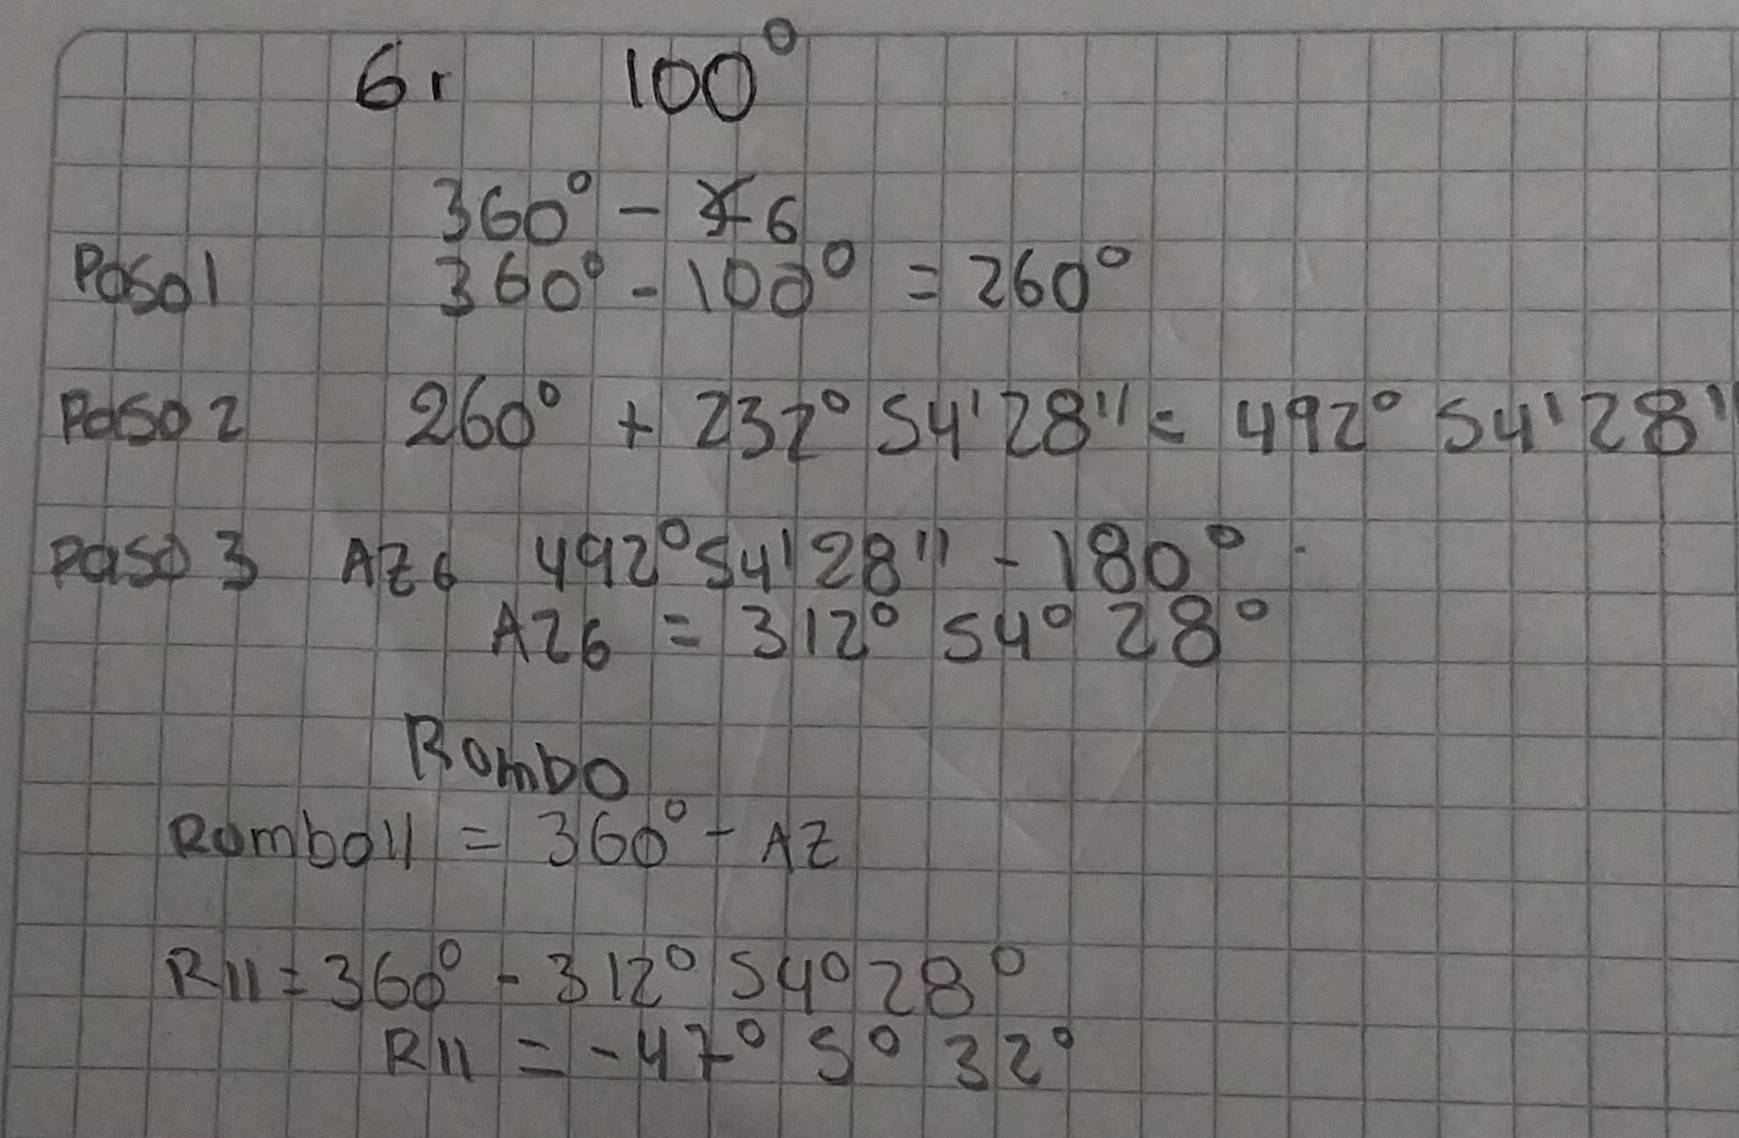 6. 100°
360° - 6
Paso 1 360° - 100° = 260°
Paso 2 260° + 232° 54' 28" = 492° 54' 28"
Paso 3 AZ6 492° 54' 28" - 180°
AZ6 = 312° 54° 28°
Rombo
Rombo 11 = 360° - AZ
R11 = 360° - 312° 54° 28°
R11 = -47° 5° 32°